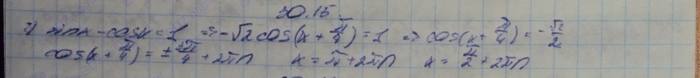 30.15
2) sinx - cosx = 1 => -√2 cos(x + π/4) = 1 => cos(x + π/4) = -√2/2
cos(x + π/4) = ± 3π/4 + 2πn x = π + 2πn x = π/2 + 2πn